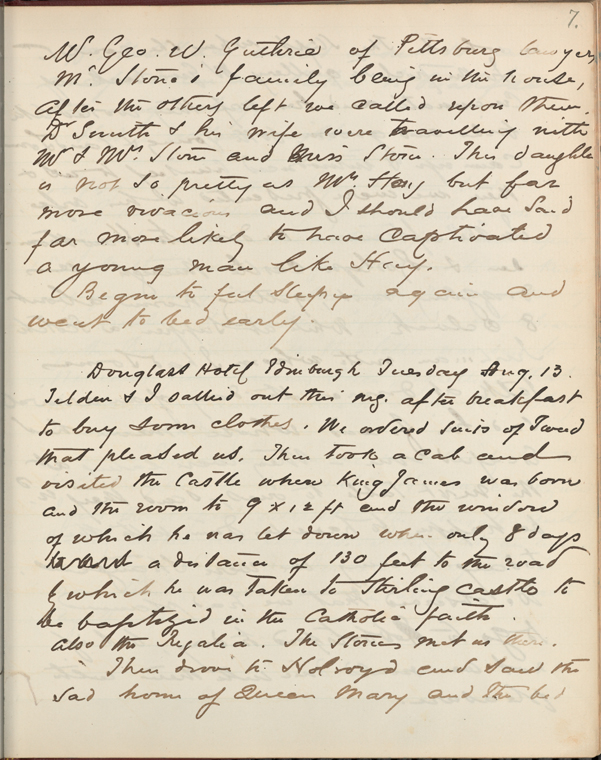 7.
W. Geo. W Guthrie of Pittsburg lawyer
Mr. Stone's family being in the house,
after the others left we called upon them.
Dr Smith & his wife were travelling with
Mr & Mrs. Stone and Miss Stone. This daughter
is not so pretty as Mrs. Hay but far
more vivacious and I should have said
far more likely to have captivated
a young man like Hay.
Began to feel sleepy again and
went to bed early.
Douglass Hotel Edinburgh Tuesday Aug. 13.
Tilden & I sallied out this mg. after breakfast
to buy some clothes. We ordered suits of Tweed
that pleased us. Then took a cab and
visited the Castle where King James was born
and the room 9 x 12 ft and the window
of which he was let down when only 8 days
a distance of 130 feet to the road
which he was taken to Stirling castle to
be baptized in the Catholic faith.
also the Regalia. The Stones met us there.
Then drove to Holroyd and saw the
sad home of Queen Mary and the bed